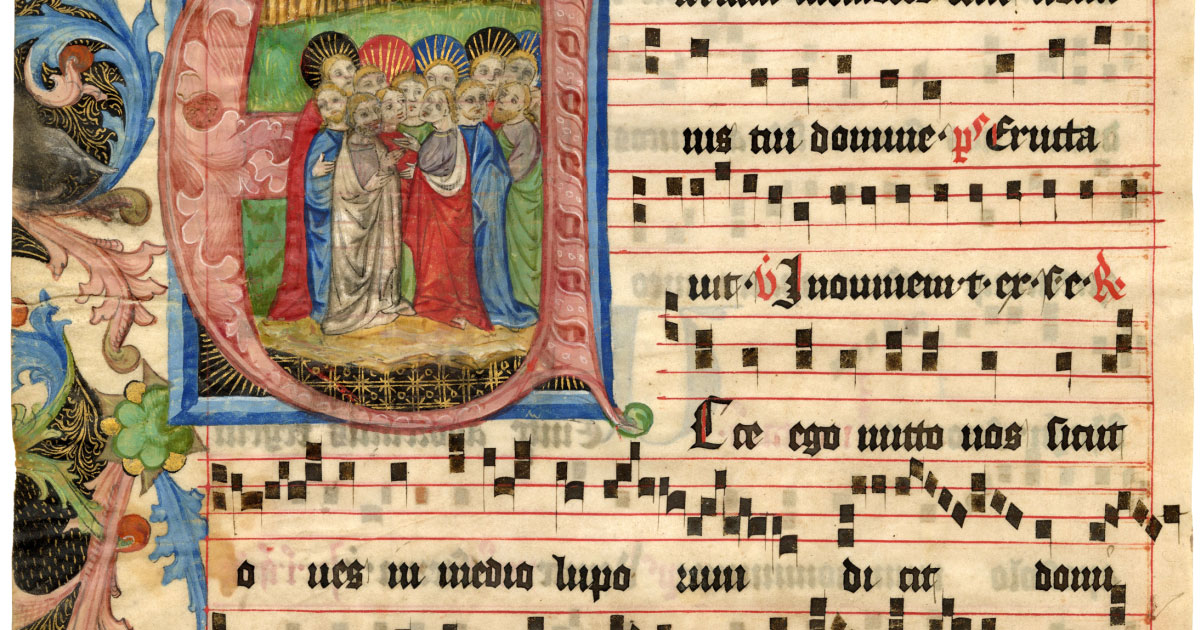 nis tui domine· ps Eructa
uit· V Inomnem·t·ex·s·e· R
Ecce ego mitto uos sicut
o ues in medio lupo rum di cit domi